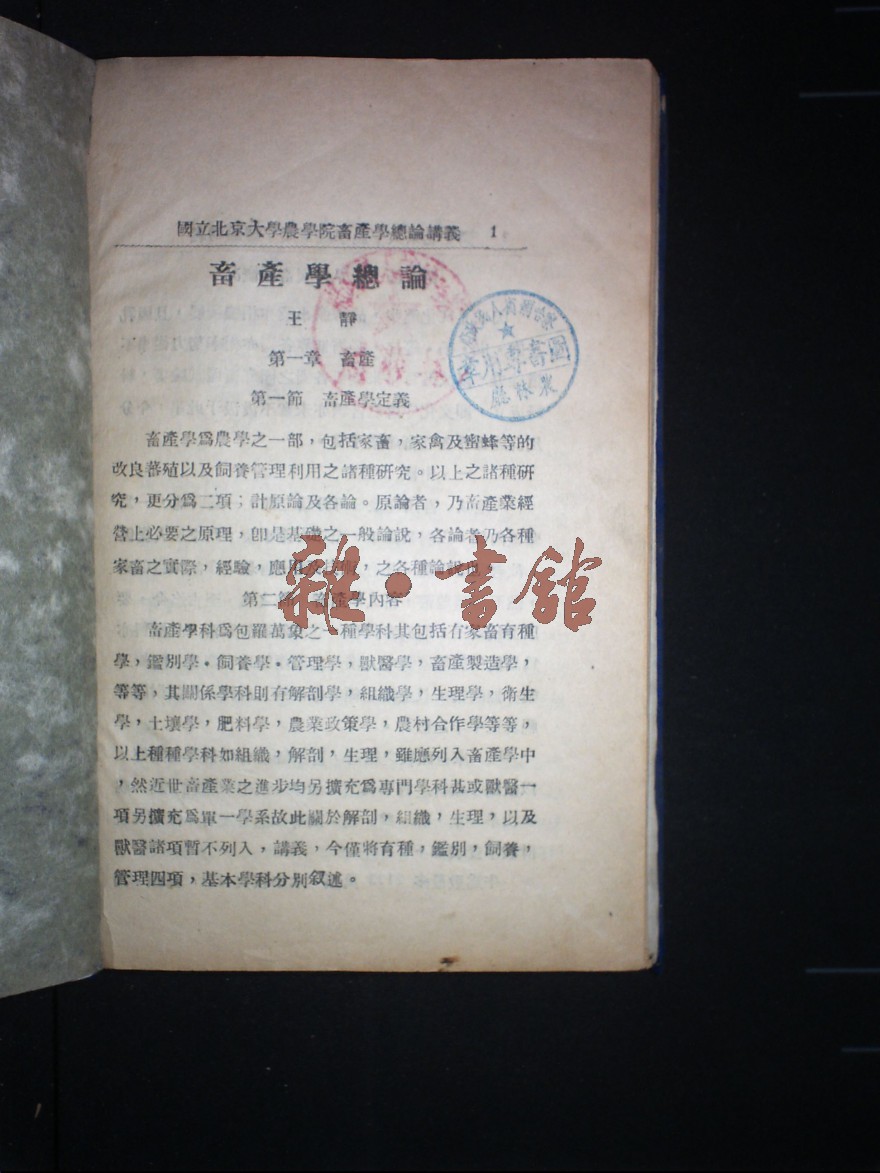 國立北京大學農學院畜產學總論講義 1
畜產學總論
王 靜
第一章 畜產
第一節 畜產學定義
畜產學爲農學之一部，包括家畜，家禽及蜜蜂等的
改良蕃殖以及飼養管理利用之諸種研究。以上之諸種研
究，更分爲二項；計原論及各論。原論者，乃畜產業經
營上必要之原理，卽是基礎之一般論說，各論者乃各種
家畜之實際，經驗，應用及，之各種論說
第二節 畜產學內容
畜產學科爲包羅萬象之一種學科其包括有家畜育種
學，鑑別學·飼養學·管理學，獸醫學，畜產製造學，
等等，其關係學科則有解剖學，組織學，生理學，衛生
學，土壤學，肥料學，農業政策學，農村合作學等等，
以上種種學科如組織，解剖，生理，雖應列入畜產學中
，然近世畜產業之進步均另擴充爲專門學科甚或獸醫一
項另擴充爲單一學系故此關於解剖，組織，生理，以及
獸醫諸項暫不列入，講義，今僅將育種，鑑別，飼養，
管理四項，基本學科分別叙述。
雜·書館
圖書專用章
農林廳